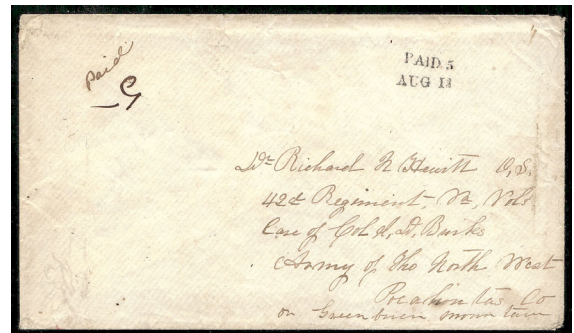 Paid
5
PAID 5
AUG 13
Dr Richard N Hewitt O, S.
42d Regiment, Va, Vols
Care of Col J, D, Burks
Army of Tho North West
Pocahontas Co
on Greenbrier mountain